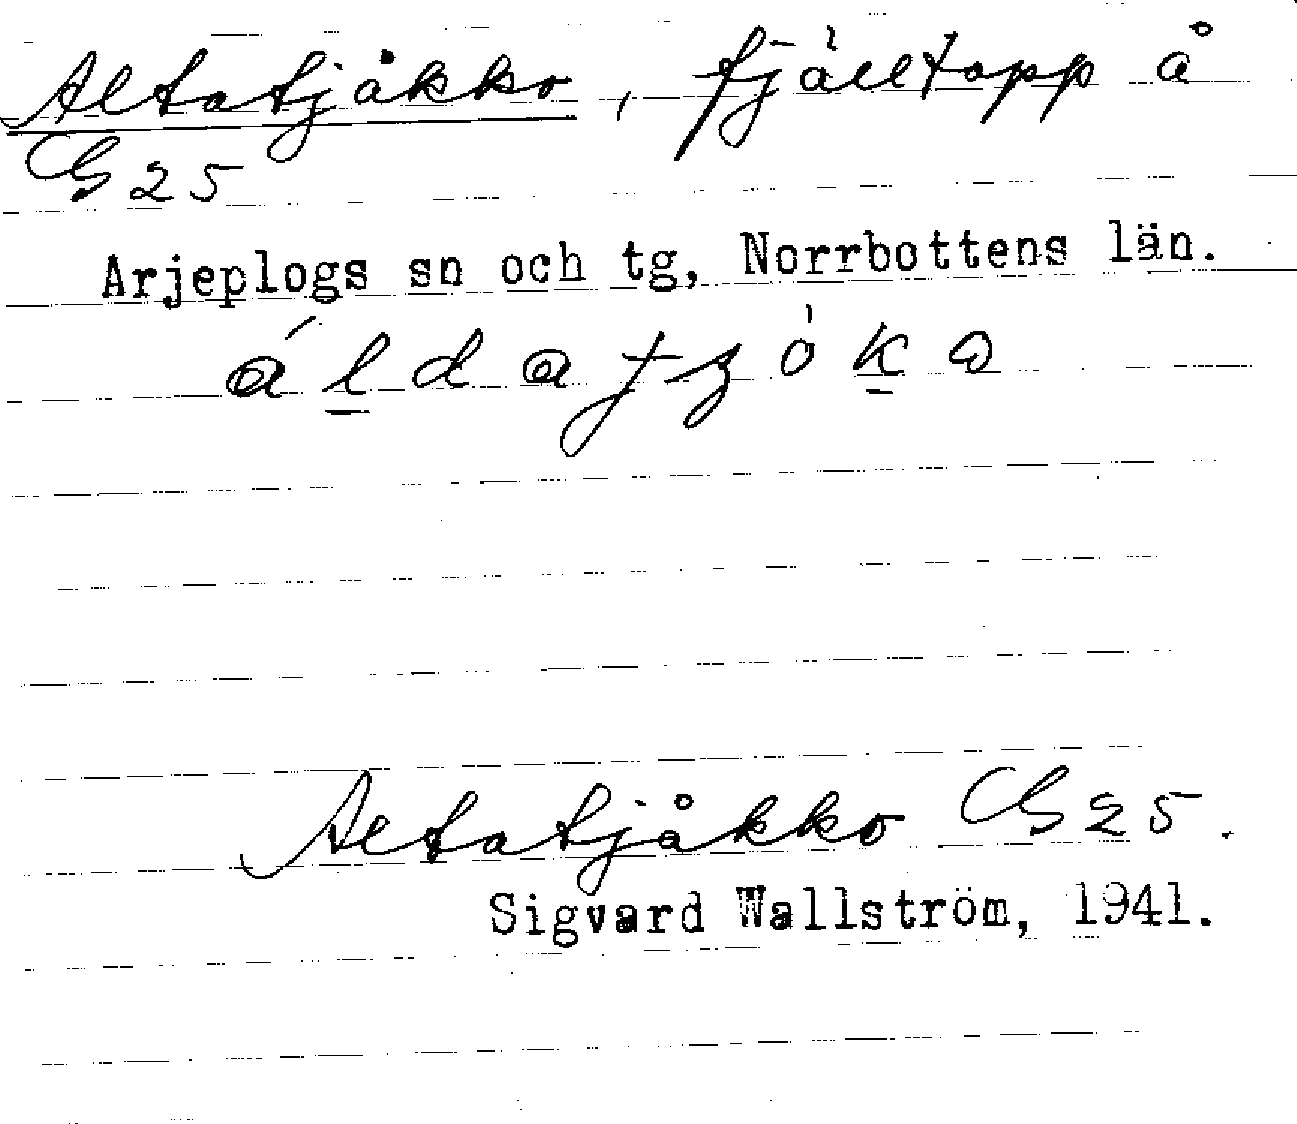 Altatjåkko, fjälltopp å
G 25
Arjeplogs sn och tg, Norrbottens län.
áldatjȯkɷ
Altatjåkko G 25.
Sigvard Wallström, 1941.